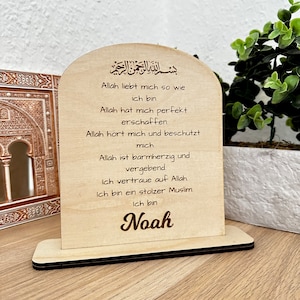 بسم الله الرحمن الرحيم
Allah liebt mich so wie
ich bin
Allah hat mich perfekt
erschaffen
Allah hört mich und beschützt
mich
Allah ist barmherzig und
vergebend
Ich vertraue auf Allah
Ich bin ein stolzer Muslim.
Ich bin
Noah